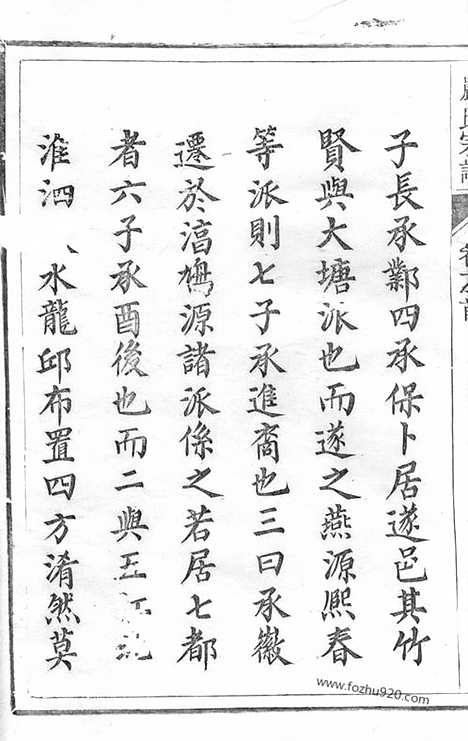 子長承鄴四承保卜居遂邑其竹
賢與大塘派也而遂之燕源熙春
等派則七子承進裔也三曰承徽
遷於湆鳩源諸派係之若居七都
者六子承酉後也而二與五
淮泗 水龍邱布置四方淆然莫
www.fozhu920.com